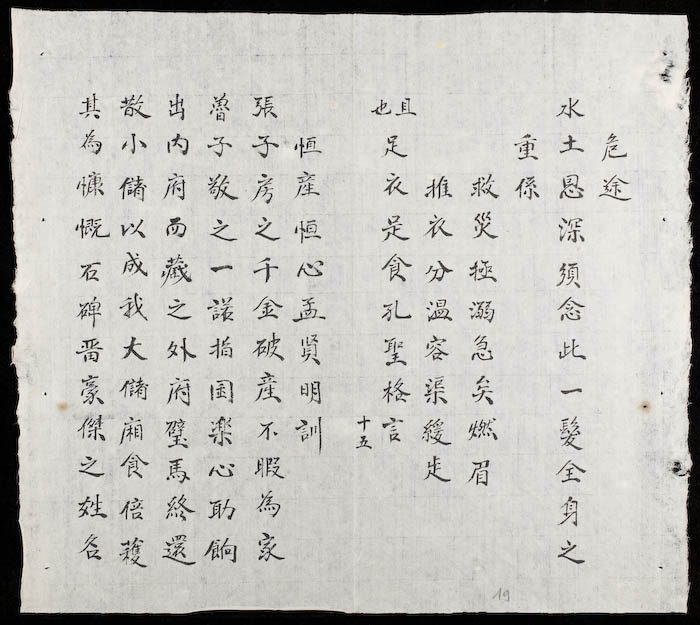 危途
水土恩深須念此一髮全身之
重係
救災極溺急矣燃眉
推衣分温容渠緩步
且
也足衣足食孔聖格言
十五
恒産恒心孟賢明訓
張子房之千金破産不暇為家
魯子敬之一諾指囷楽心助餉
出内府而蔵之外府璧馬終還
散小儲以成我大儲廂食倍穫
其為慷慨石碑晋豪傑之姓名
19